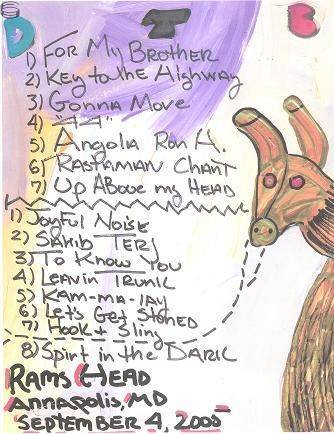 D T B
1) FOR MY BROTHER
2) Key to the Highway
3) GONNA MOVE
4)
5) Angolia Ron
6) RASTAMAN CHANT
7) UP ABOVE my HEAD
1) Joyful NOISE
2) SAHIB TERI
3) To KNOW YOU
4) LEAVIN TRUNK
5) KAM-MA-LAY
6) Let's Get Stoned
7) Hook + Sling
8) Spirt in the DARK
RAMS HEAD
ANNAPOLIS, MD
SEPTEMBER 4, 2005